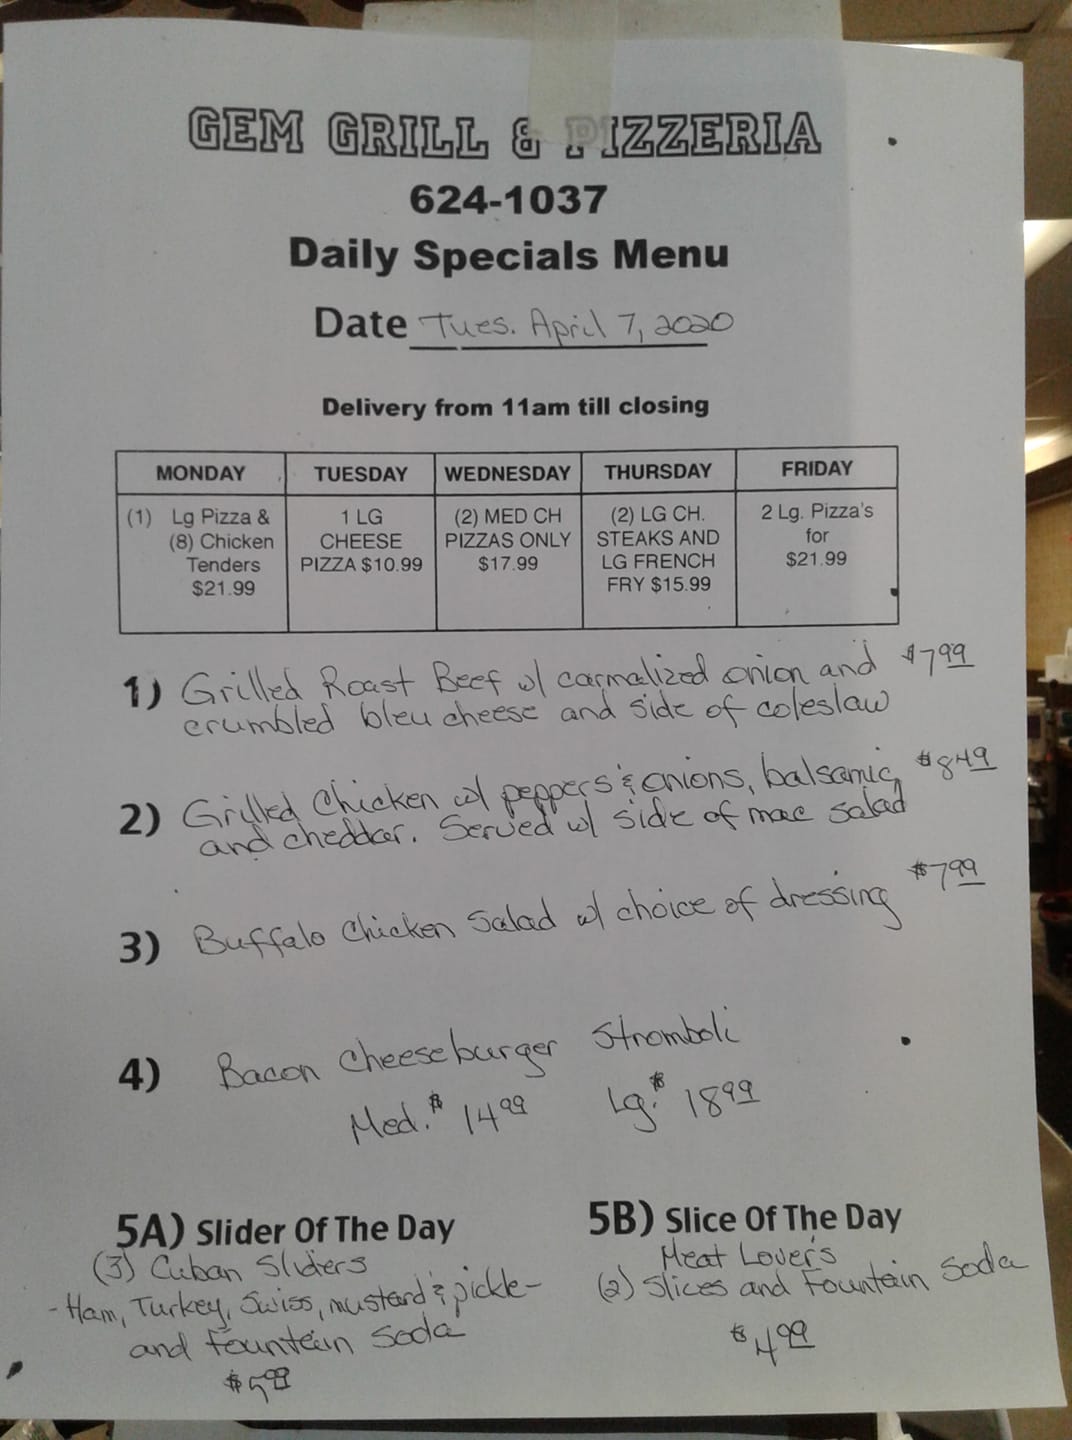 GEM GRILL & PIZZERIA
624-1037
Daily Specials Menu
Date Tues. April 7, 2020
Delivery from 11am till closing
MONDAY TUESDAY WEDNESDAY THURSDAY FRIDAY
(1) Lg Pizza &
(8) Chicken
Tenders
$21.99
1 LG
CHEESE
PIZZA $10.99
(2) MED CH
PIZZAS ONLY
$17.99
(2) LG CH.
STEAKS AND
LG FRENCH
FRY $15.99
2 Lg. Pizza's
for
$21.99
1) Grilled Roast Beef w/ carmalized onion and $7.99
crumbled bleu cheese and side of coleslaw
2) Grilled Chicken w/ peppers & onions, balsamic, $8.49
and cheddar. Served w/ side of mac salad
3) Buffalo Chicken Salad w/ choice of dressing $7.99
4) Bacon Cheeseburger Stromboli
Med. $14.99 Lg. $18.99
5A) Slider Of The Day
(3) Cuban Sliders
- Ham, Turkey, Swiss, mustard & pickle -
and Fountain Soda
$5.99
5B) Slice Of The Day
Meat Lover's
(2) Slices and Fountain Soda
$4.99